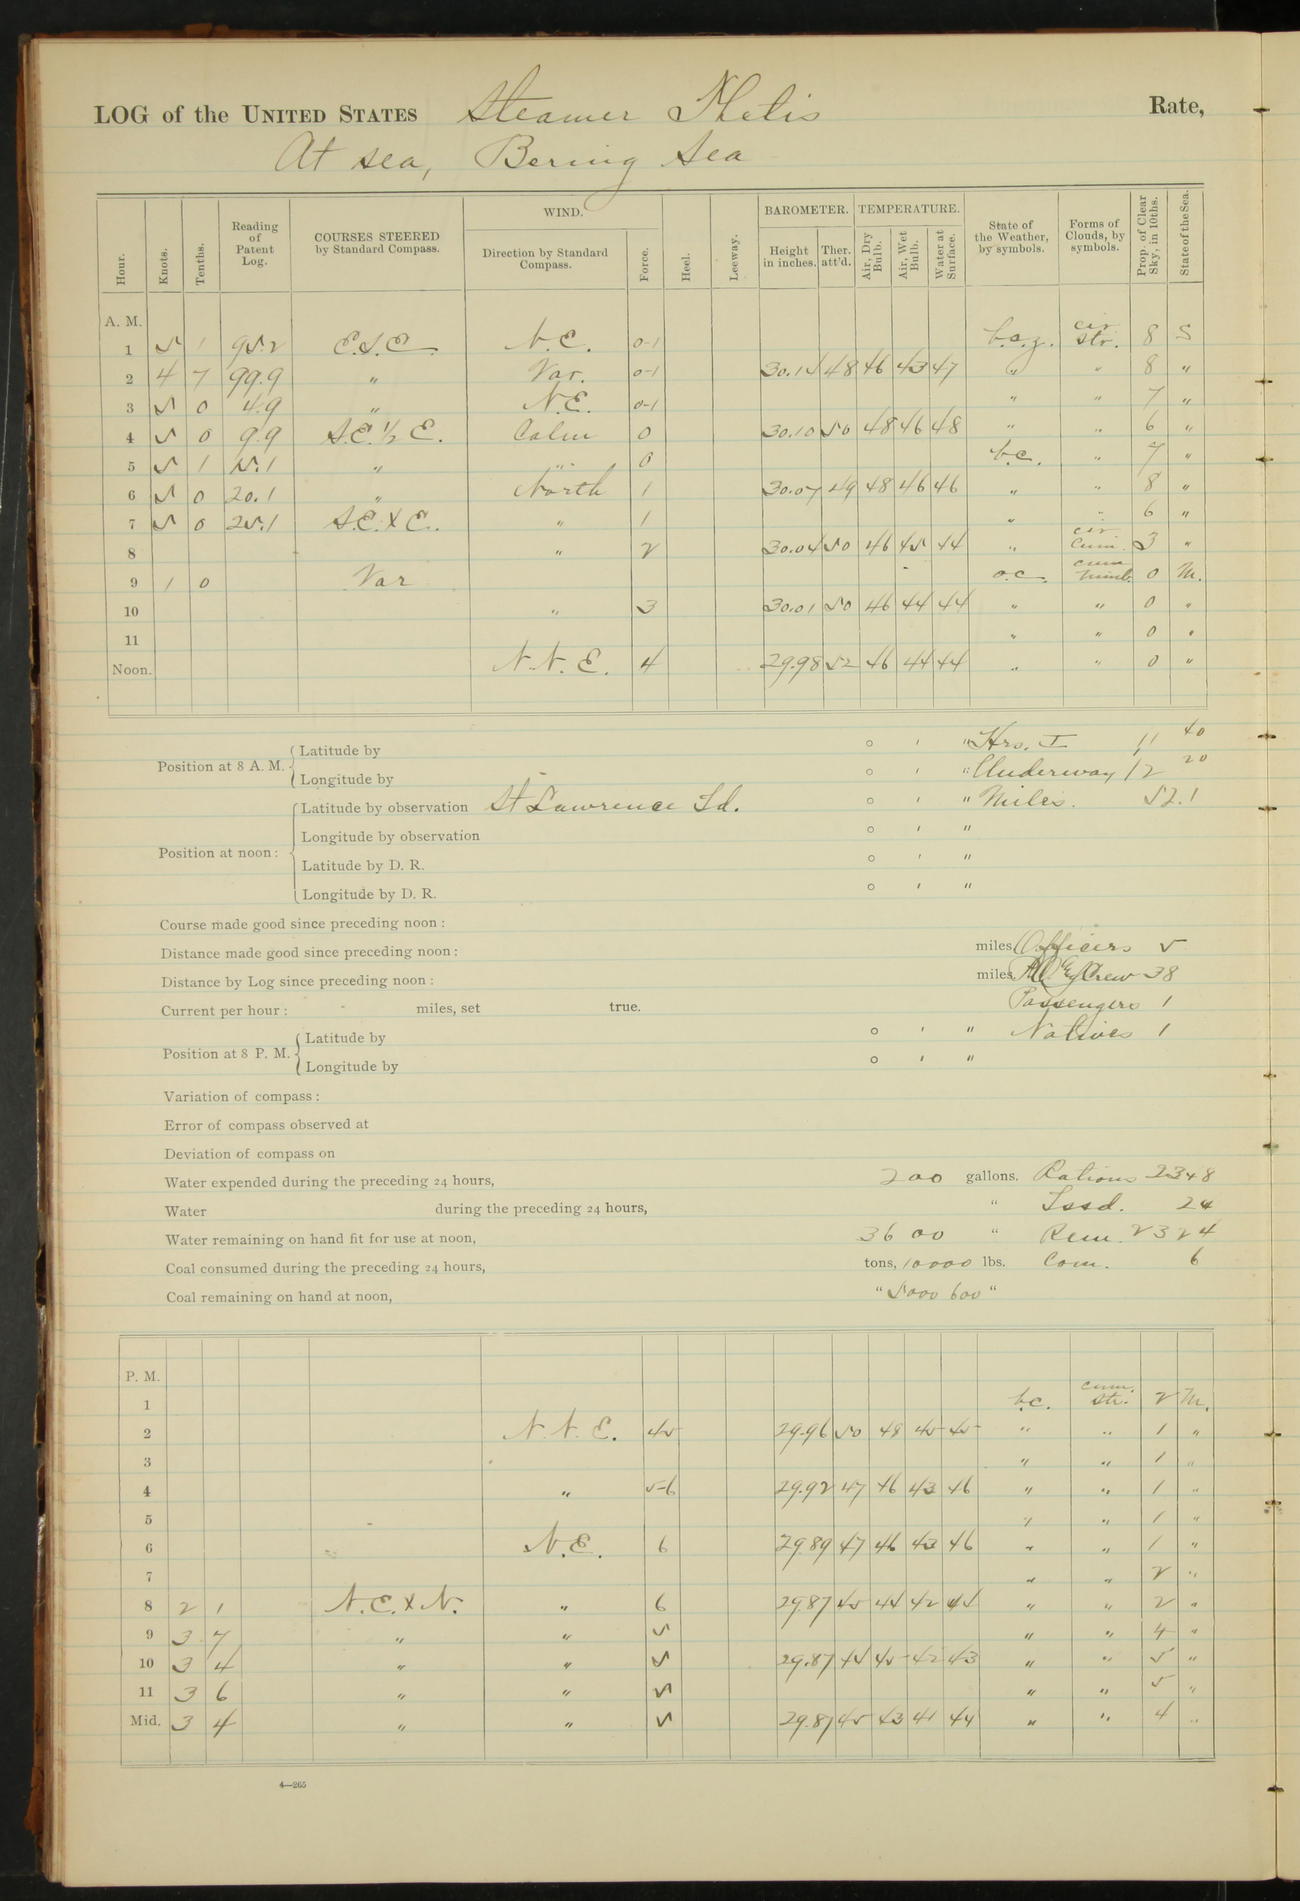 LOG of the UNITED STATES Steamer Thetis Rate,
At sea, Bering Sea
Hour. Knots. Tenths. Reading of Patent Log. COURSES STEERED by Standard Compass. WIND. Direction by Standard Compass. Force. Heel. Leeway. BAROMETER. Height in inches. Ther. att'd. TEMPERATURE. Air, Dry Bulb. Air, Wet Bulb. Water at Surface. State of the Weather, by symbols. Forms of Clouds, by symbols. Prop. of Clear Sky, in 10ths. State of the Sea.
A. M.
1 5 1 95.2 E.S.E. N.E. 0-1 b.c.z. cir str. 8 S
2 4 7 99.9 " Var. 0-1 30.15 48 46 43 47 " " 8 "
3 5 0 4.9 " N.E. 0-1 " " 7 "
4 5 0 9.9 S.E. 1/2 E. Calm 0 30.10 50 48 46 48 " " 6 "
5 5 1 15.1 " " 0 b.c. " 7 "
6 5 0 20.1 " North 1 30.07 49 48 46 46 " " 8 "
7 5 0 25.1 S.E. x E. " 1 " " 6 "
8 " 2 30.04 50 46 45 44 " cir cum. 3 "
9 1 0 Var o.c. cum nimb. 0 M.
10 " 3 30.01 50 46 44 44 " " 0 "
11 " " 0 "
Noon. N.N.E. 4 29.98 52 46 44 44 " " 0 "
Position at 8 A. M. Latitude by ° ' " Hrs. I 11 40
Longitude by ° ' " Underway 12 20
Position at noon: Latitude by observation St Lawrence Id. ° ' " Miles. 52.1
Longitude by observation ° ' "
Latitude by D. R. ° ' "
Longitude by D. R. ° ' "
Course made good since preceding noon:
Distance made good since preceding noon: miles Officers 5
Distance by Log since preceding noon: miles Crew 38
Current per hour: miles, set true. Passengers 1
Position at 8 P. M. Latitude by ° ' " Natives 1
Longitude by ° ' "
Variation of compass:
Error of compass observed at
Deviation of compass on
Water expended during the preceding 24 hours, 200 gallons. Rations 2348
Water during the preceding 24 hours, " Issd. 24
Water remaining on hand fit for use at noon, 3600 " Rem. 2324
Coal consumed during the preceding 24 hours, tons, 10000 lbs. Com. 6
Coal remaining on hand at noon, " 5000 600 "
P. M.
1 b.c. cum. str. 2 M.
2 N.N.E. 45 29.96 50 48 45 45 " " 1 "
3 " " 1 "
4 " 5-6 29.92 47 46 43 46 " " 1 "
5 " " 1 "
6 N.E. 6 29.89 47 46 43 46 " " 1 "
7 " " 2 "
8 2 1 N.E. x N. " 6 29.87 45 44 42 44 " " 2 "
9 3 7 " " 5 " " 4 "
10 3 4 " " 5 29.87 44 45 42 43 " " 5 "
11 3 6 " " 5 " " 5 "
Mid. 3 4 " " 5 29.87 45 43 41 44 " " 4 "
4—265